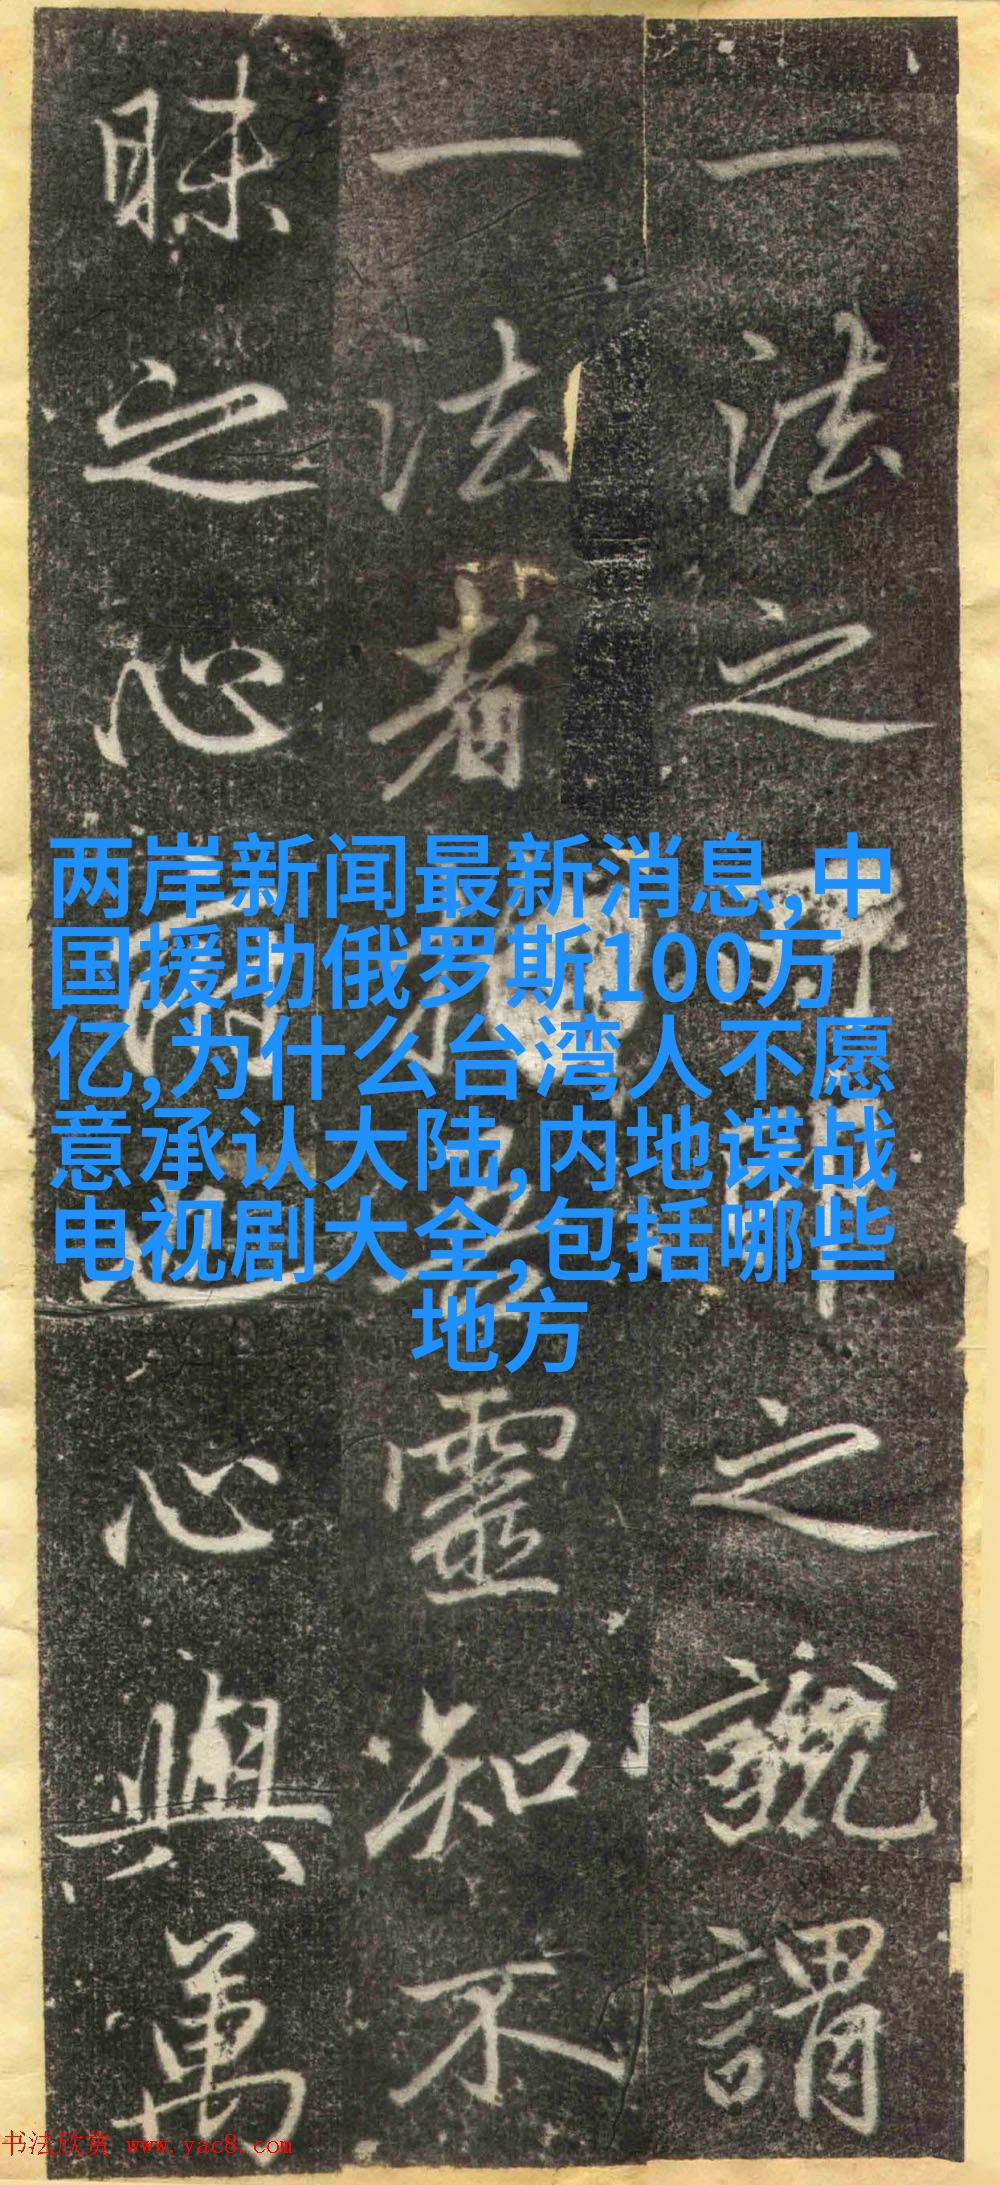 一法之之說謂
一法者靈知不
昧之心心與萬
两岸新闻最新消息,中
国援助俄罗斯100万
亿,为什么台湾人不愿
意承认大陆,内地谍战
电视剧大全,包括哪些
地方
书法欣赏 www.yac8.com